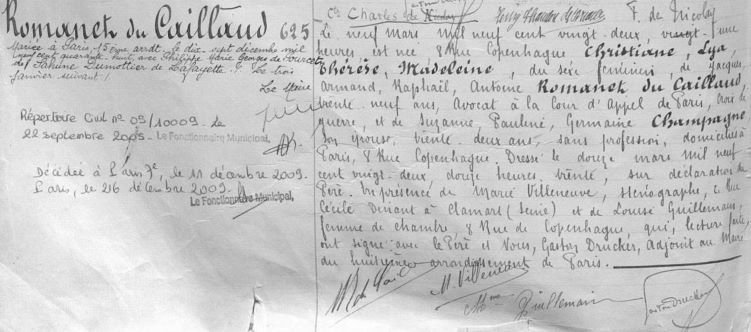 Romanet du Caillaud 625
Mariée à Paris 15ème arrdt. le dix-sept décembre mil
neuf cent quarante-huit, avec Philippe Marie Georges de
Dumottier de Lafayette. Le trois
janvier suivant.
Le Maire
Répertoire Civil n° 09/10009 - le
22 septembre 2009 Le Fonctionnaire Municipal,
Décédée à Paris 7e, le 11 décembre 2009.
Paris, le 26 décembre 2009.
Le Fonctionnaire Municipal,
Cte Charles de Nicolay F. de Nicolay
Le neuf Mars mil neuf cent vingt-deux, vingt-une
heures est née 8 Rue Copenhague Christiane, Lya
Thérèse, Madeleine, du sexe féminin, de Jacques,
Armand, Raphaël, Antoine Romanet du Caillaud
trente-neuf ans, Avocat à la Cour d'Appel de Paris, croix de
guerre, et de Suzanne, Pauline, Germaine Champagne
son épouse, vingt-deux ans, sans profession, domiciliés à
Paris, 8 Rue Copenhague. Dressé le douze mars mil neuf
cent vingt-deux, douze heures trente, sur déclaration du
Père. En présence de Marie Villeneuve, sténographe, 6 Rue
Cécile Dinant à Clamart (Seine) et de Louise Guillemain,
femme de chambre 8 Rue de Copenhague, qui, lecture faite,
ont signé avec le Père et Nous, Gaston Drucker, Adjoint au Maire
du huitième arrondissement de Paris.
M. Villeneuve
Mme Guillemain
Gaston Drucker